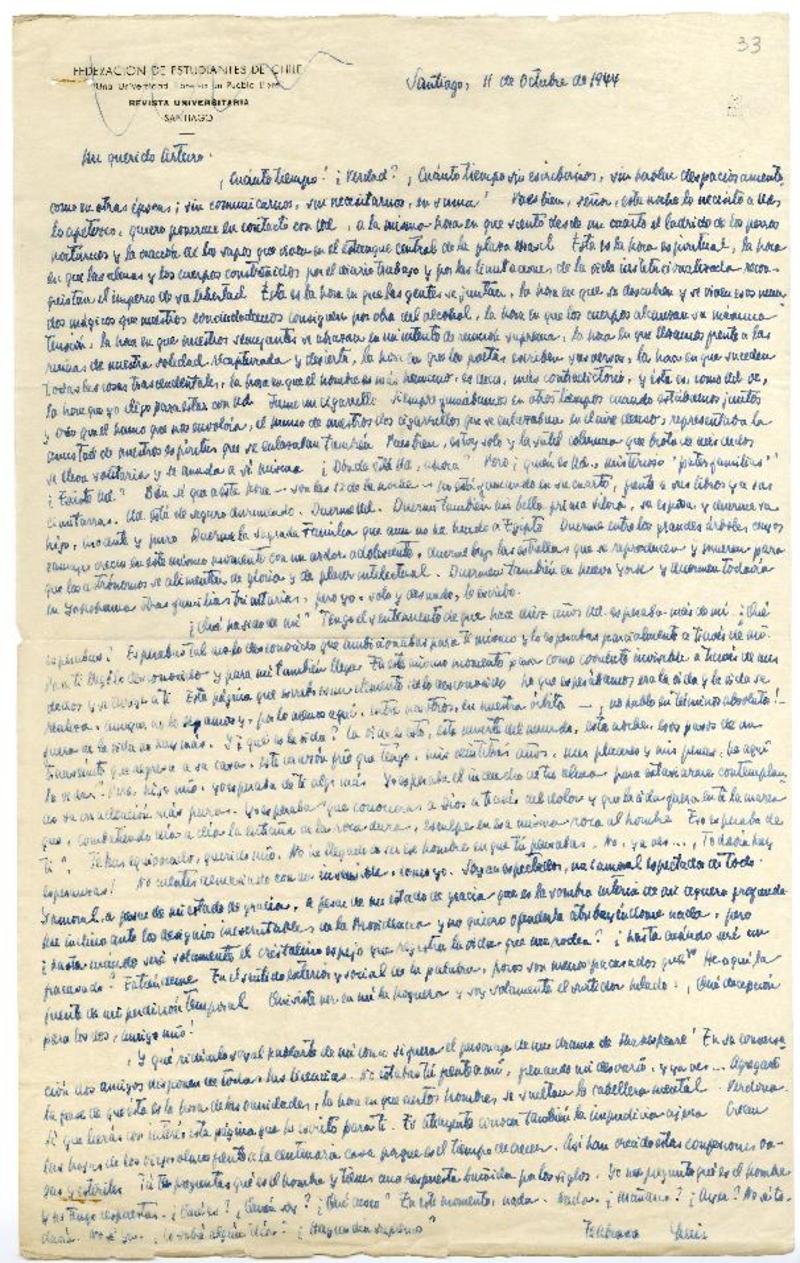 33
FEDERACION DE ESTUDIANTES DE CHILE
"Una Universidad Libre en un Pueblo Libre"
REVISTA UNIVERSITARIA
SANTIAGO
Santiago, 11 de Octubre de 1944
Mi querido Arturo:
¡Cuánto tiempo! ¿Verdad? ¡Cuánto tiempo sin escribirnos, sin hablar despaciosamente,
como en otras épocas; sin comunicarnos, sin necesitarnos, en suma! Pues bien, señor, esta noche lo necesito a Ud.
lo apetezco, quiero ponerme en contacto con Ud., a la misma hora en que siento desde mi cuarto el ladrido de los perros
nocturnos y la canción de los sapos que viven en el estanque central de la plaza Brasil. Esta es la hora espiritual, la hora
en que las almas y los cuerpos constreñidos por el diario trabajo y por las limitaciones de la vida institucionalizada recon-
quistan el imperio de su libertad. Esta es la hora en que las gentes se juntan, la hora en que se descubren y se viven esos mun-
dos mágicos que nuestros conciudadanos consiguen por obra del alcohol, la hora en que los cuerpos alcanzan su máxima
tensión, la hora en que nuestros semejantes se abrazan en un intento de reunión suprema, la hora en que lloramos frente a las
ruinas de nuestra soledad recapturada y desierta, la hora en que los poetas escriben sus versos, la hora en que suceden
todas las cosas trascendentales, la hora en que el hombre es más humano, es decir, más contradictorio, y ésta es, como Ud. ve,
la hora que yo elijo para estar con Ud. Fume un cigarrillo. Siempre fumábamos en otros tiempos cuando estábamos juntos
y creo que el humo que nos envolvía, el humo de nuestros dos cigarrillos que se enlazaban en el aire denso, representaba la
amistad de nuestros espíritus que se enlazaban también. Pues bien, estoy solo y la sutil columna que brota de mis dedos
se eleva solitaria y se anuda a sí misma. ¿Dónde está Ud., ahora? Pero ¿quién es Ud., misterioso "pater familias"?
¿Existe Ud.? Bien sé que a esta hora — son las 12 de la noche — no está fumando en su cuarto, frente a sus libros y a sus
cimitarras. Ud. está de seguro durmiendo. Duerme Ud. Duerme también mi bella prima Silvia, su esposa, y duerme su
hijo, inocente y puro. Duerme la sagrada Familia que aun no ha huido a Egipto. Duerme entre los grandes árboles cuyos
ramajes crecen en este mismo momento con un ardor adolescente, duerme bajo las estrellas que se reproducen y mueren para
que los astrónomos se alimenten de gloria y de placer intelectual. Duermen también en nueva York y duermen todavía
en Yokohama otras familias trinitarias, pero yo, solo y desnudo, le escribo.
¿Qué ha sido de mí? Tengo el sentimiento de que hace diez años Ud. esperaba más de mí. ¿Qué
esperabas? Esperabas tal vez lo desconocido que ambicionabas para ti mismo y lo esperabas parcialmente a través de mí.
Para ti llegó lo desconocido y para mí también llega. En este mismo momento pasa como corriente invisible a través de mis
dedos y se dirige a ti. Esta página que escribo es un elemento de lo desconocido. Lo que esperábamos era la vida y la vida se
realiza, aunque no lo sepamos, y por lo menos aquí, entre nosotros, en nuestra órbita —, ¡no hablo en términos absolutos!—
fuera de la vida no hay más. Y ¿qué es la vida? La vida es esto, esta muerte del mundo, esta noche, esos pasos de un
transeúnte que regresa a su casa, este corazón frío que tengo, mis veintitrés años, mis placeres y mis penas, he aquí
la vida. "Pero, hijo mío, yo esperaba de ti algo más. Yo esperaba el incendio de tu alma, para extasiarme contemplan-
do su coloración más pura. Yo esperaba que conocieras a Dios a través del dolor y que la vida fuera en ti la marea
que, combatiendo día a día la entraña de la roca dura, esculpe en esa misma roca al hombre. Eso esperaba de
ti". Te has equivocado, querido mío. No he llegado a ser ese hombre en que tú pensabas. No, ya ves..., ¡Todavía hay
esperanzas! No cuentes demasiado con un insensible, como yo. Soy un espectador, un amoral espectador de todo.
¡Amoral, a pesar de mi estado de gracia, a pesar de mi estado de gracia que es la sombra interior de mi ceguera profunda!
Me inclino ante los designios inescrutables de la Providencia y no quiero ofenderla atribuyéndome nada, pero
¿hasta cuándo seré solamente el cristalino espejo que registra la vida que me rodea? ¿hasta cuándo seré un
fracasado? Entiéndeme. En el sentido exterior y social de la palabra, pocos son menos fracasados que yo. He aquí la
fuente de mi perdición temporal. Quisiste ver en mí la hoguera y soy solamente el surtidor helado. ¡Qué decepción
para los dos, amigo mío!
¡Y qué ridículo soy al hablarte de mí como si fuera el personaje de un drama de Shakespeare! En su conversa-
ción dos amigos disponen de todas las licencias. No estabas tú frente a mí, frenando mi desvarío, y ya ves... Agregaste
la frase de que ésta es la hora de las vanidades, la hora en que ciertos hombres se sueltan la cabellera mental. Perdona.
Sé que leerás con interés esta página que he escrito para ti. Es atrayente conocer también la impudicia ajena. Crecen
las hojas de los viejos olmos frente a la centenaria casa porque es el tiempo de crecer. Así han crecido estas confesiones va-
gas y estériles. Tú te preguntas qué es el hombre y tienes una respuesta bruñida por los siglos. Yo me pregunto qué es el hombre
y no tengo respuestas. ¿Quiénes? ¿Quién soy? ¿Qué deseo? En este momento, nada. Nada. ¿Mañana? ¿Ayer? No sé to-
davía. No sé yo. ¿Lo sabrá algún Dios? ¿Hay un don supremo?
Luis